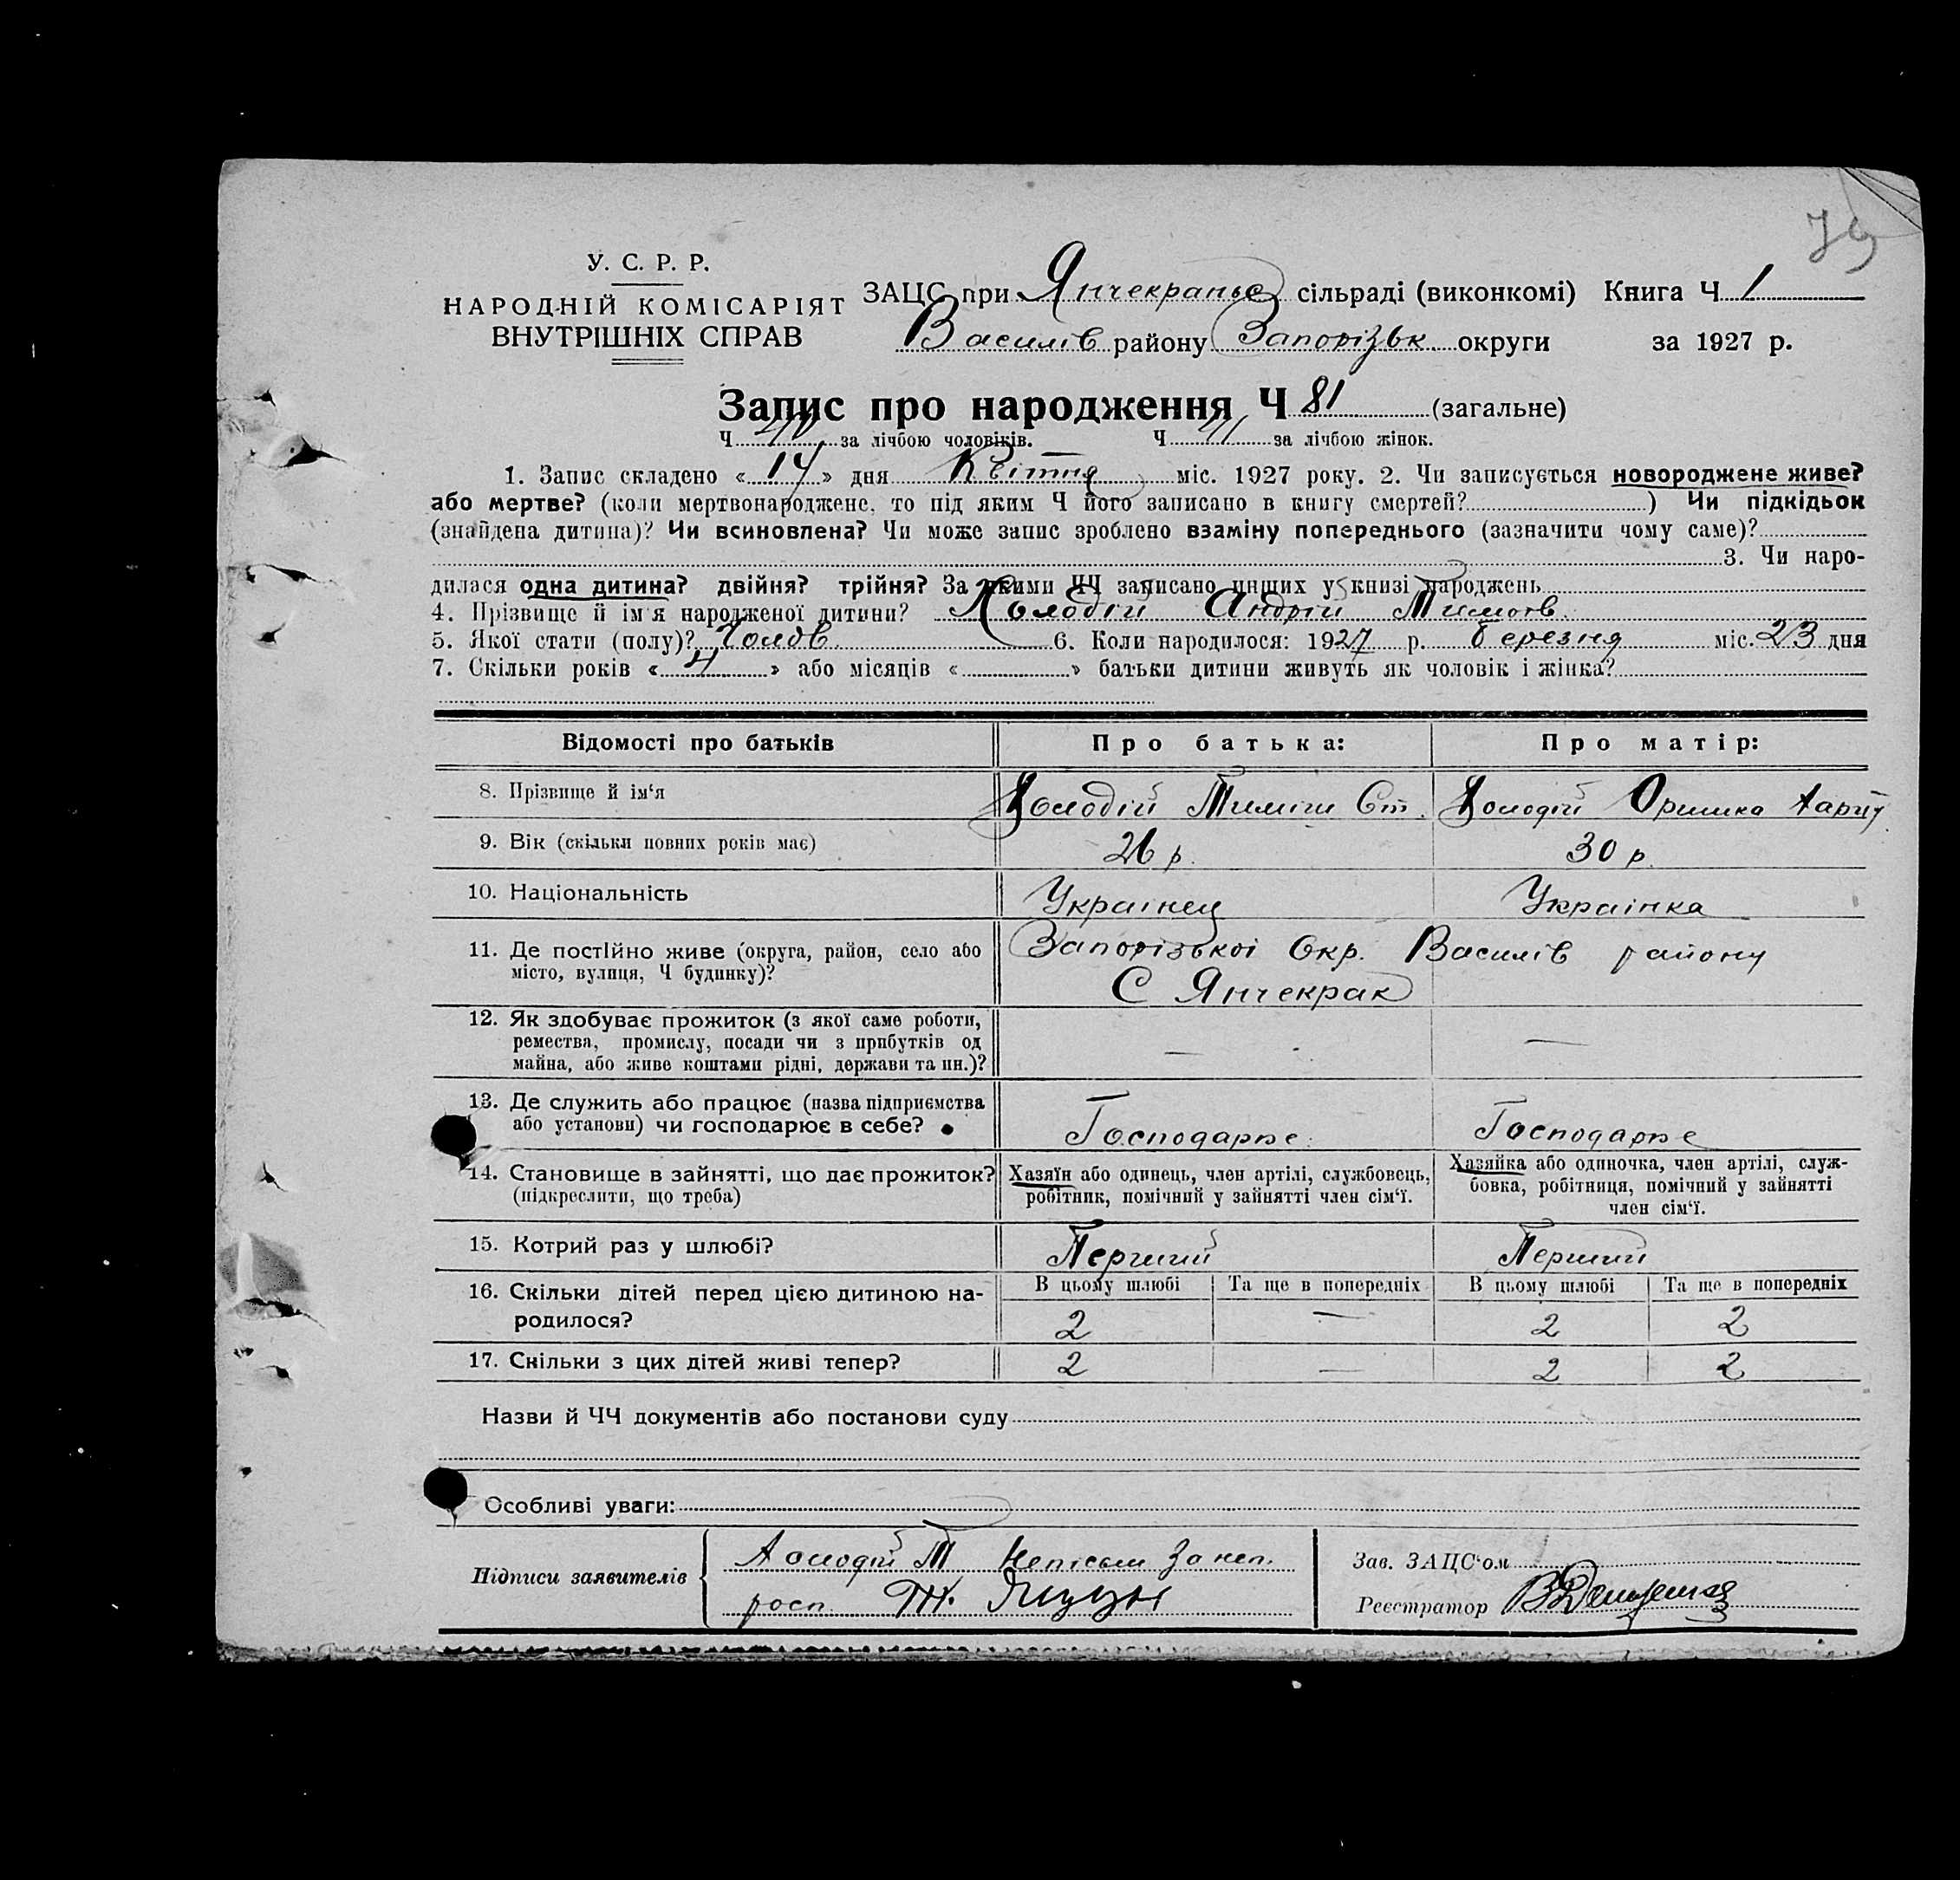 79
У. С. Р. Р.
НАРОДНІЙ КОМІСАРІЯТ
ВНУТРІШНІХ СПРАВ
ЗАЦС при Янчекраньс сільраді (виконкомі) Книга Ч 1
Василів району Запорізьк округи за 1927 р.
Запис про народження Ч 81 (загальне)
Ч 40 за лічбою чоловіків. Ч 41 за лічбою жінок.
1. Запис складено « 14 » дня Квітня міс. 1927 року. 2. Чи записується новороджене живе?
або мертве? (коли мертвонароджене, то під яким Ч його записано в книгу смертей? ) Чи підкідьок
(знайдена дитина)? Чи всиновлена? Чи може запис зроблено взаміну попереднього (зазначити чому саме)?
3. Чи наро-
дилася одна дитина? двійня? трійня? За якими ЧЧ записано инших у книзі народжень
4. Прізвище й ім'я народженої дитини? Холодій Андрій Тимоів.
5. Якої стати (полу)? Чолов. 6. Коли народилося: 1927 р. Березня міс. 23 дня
7. Скільки років « 4 » або місяців « » батьки дитини живуть як чоловік і жінка?
Відомості про батьків Про батька: Про матір:
8. Прізвище й ім'я Холодій Тиміш Ст. Холодій Оришка Харит
9. Вік (скільки повних років має) 26 р. 30 р.
10. Національність Украінец Украінка
11. Де постійно живе (округа, район, село або Запорізькоі Окр. Василів району
місто, вулиця, Ч будинку)? С Янчекрак
12. Як здобуває прожиток (з якої саме роботи,
ремества, промислу, посади чи з прибутків од — —
майна, або живе коштами рідні, держави та ин.)?
13. Де служить або працює (назва підприємства
або установи) чи господарює в себе? Господарює Господарює
14. Становище в зайнятті, що дає прожиток? Хазяїн або одинець, член артілі, службовець, Хазяйка або одиночка, член артілі, служ-
(підкреслити, що треба) робітник, помічний у зайнятті член сім'ї. бовка, робітниця, помічний у зайнятті
член сім'ї.
15. Котрий раз у шлюбі? Перший Перший
16. Скільки дітей перед цією дитиною на- В цьому шлюбі Та ще в попередніх В цьому шлюбі Та ще в попередніх
родилося? 2 — 2 2
17. Скільки з цих дітей живі тепер? 2 — 2 2
Назви й ЧЧ документів або постанови суду
Особливі уваги:
Підписи заявителів Холодій Т Непісьм За неп. Зав. ЗАЦС'ом
росп. Реєстратор